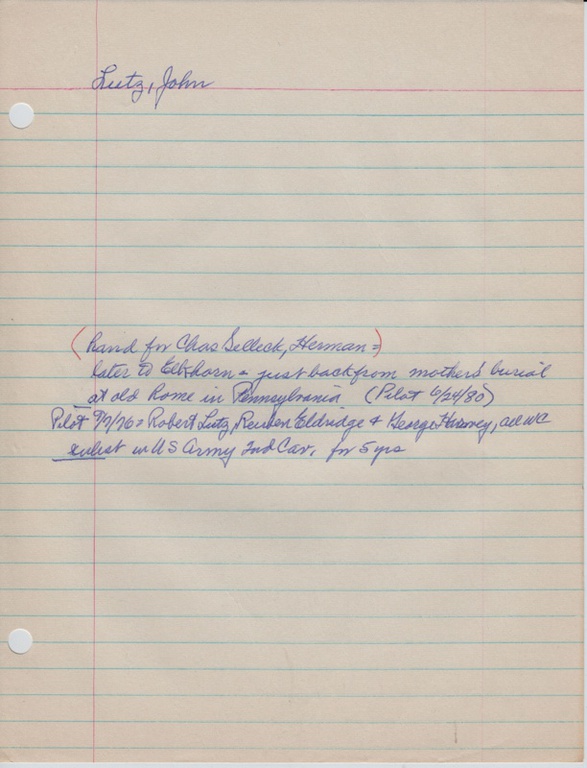 Lutz, John
(hand for Chas Selleck, Herman =
later to Elkhorn = just back from mothers' burial
at old home in Pennsylvania (Pilot 6/24/80)
Pilot 9/7/76 = Robert Lutz, Reuben Eldridge & George Harvey, all WC
enlist in US Army 2nd Cav, for 5 yrs